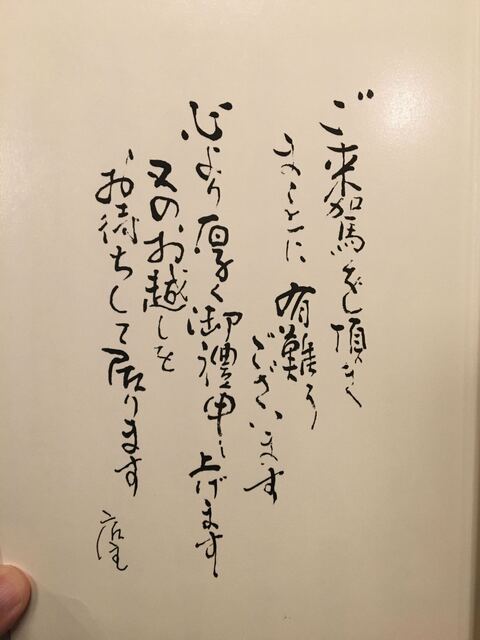 ご来駕を頂き
まことに有難う
ございます
心より厚く御禮申し上げます
又のお越しを
お待ちして居ります
店主